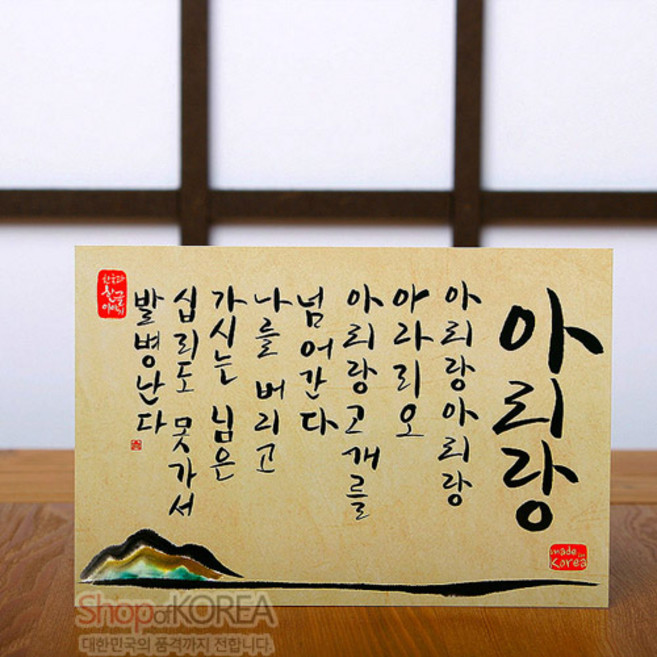 아리랑
아리랑아리랑
아라리오
아리랑고개를
넘어간다
나를 버리고
가시는 님은
십리도 못가서
발병난다
한국과
한글
이야기
made in
Korea
ShopofKOREA
대한민국의 품격까지 전합니다.